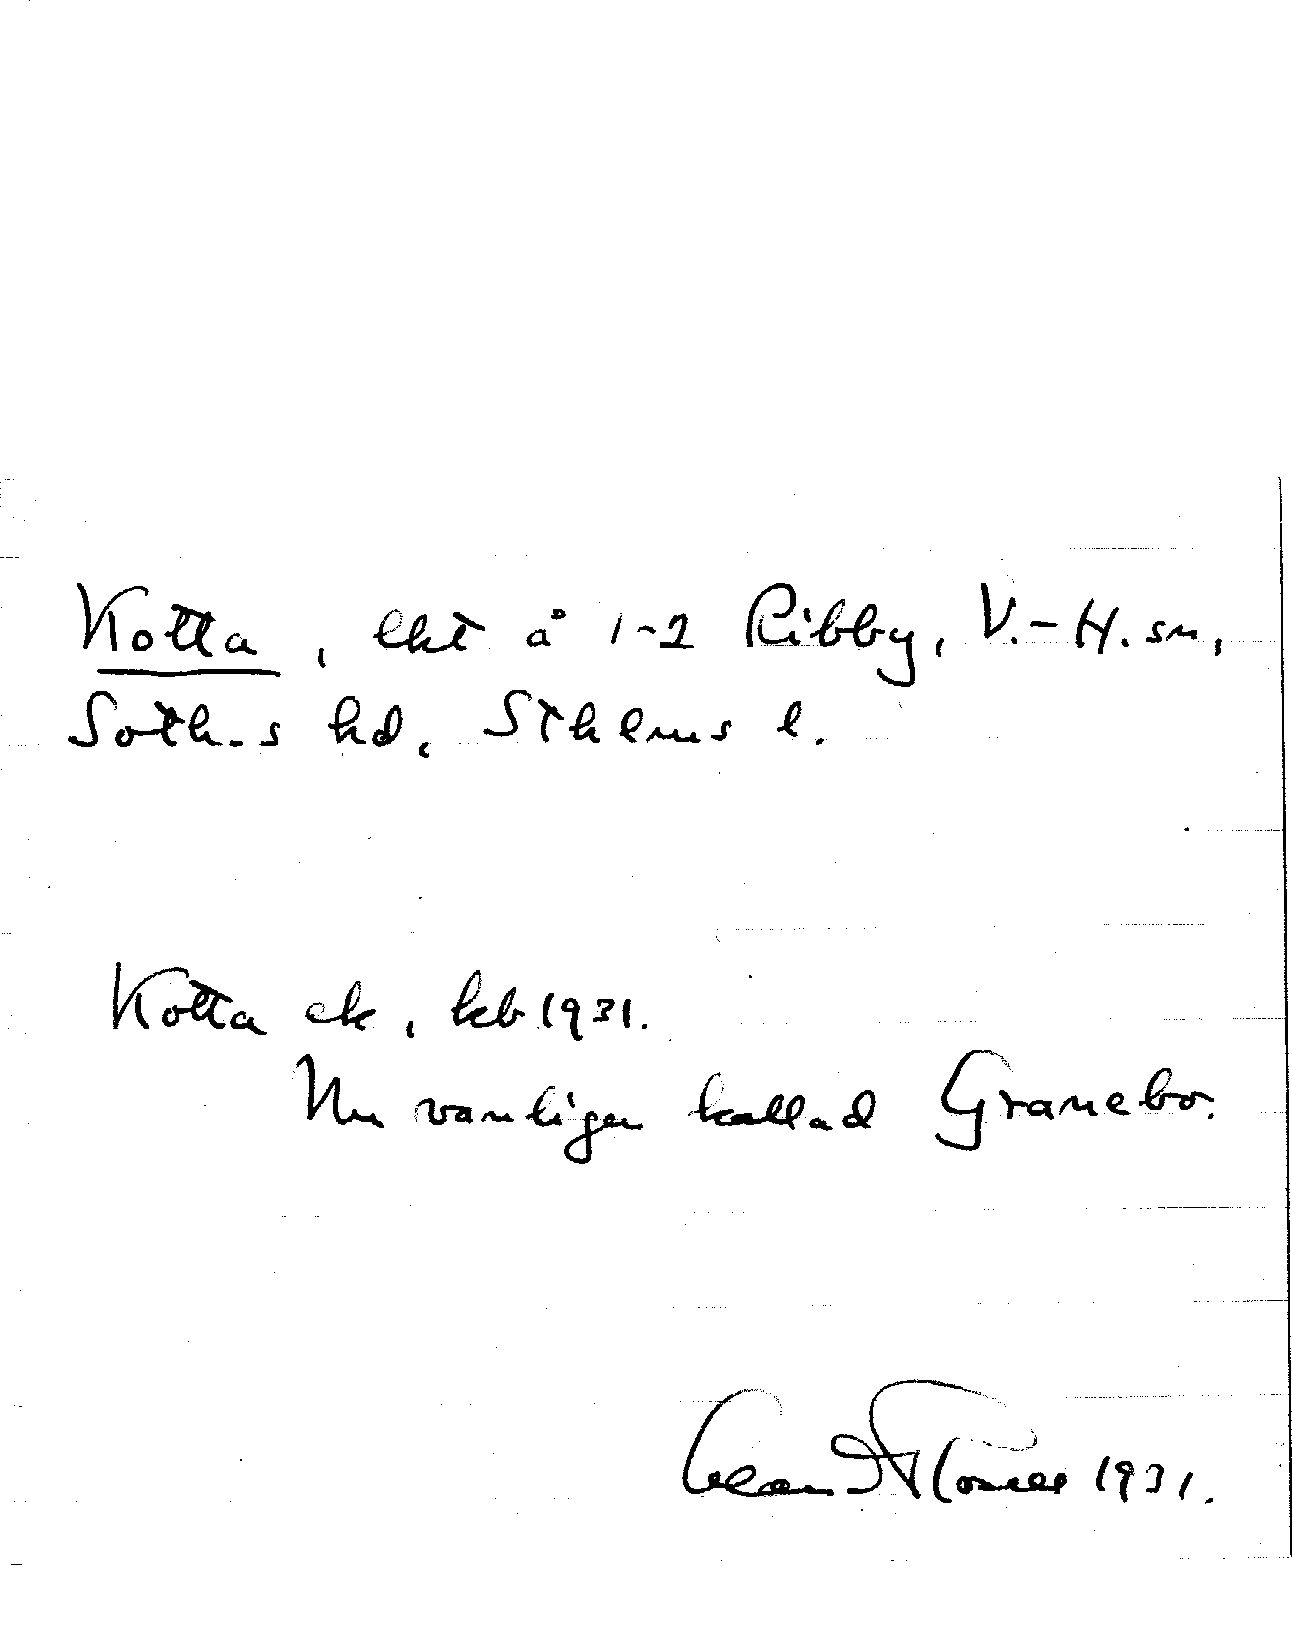 Kotta, lht å 1-2 Ribby, V.-H. sn,
Soth.s hd, Sthlms l.
Kotta ek, kb 1931.
Nu vanligen kallad Granebo.
1931.